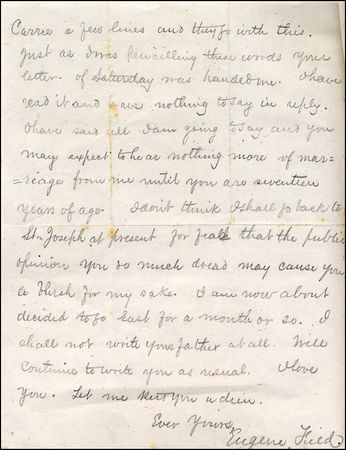 Carrie a few lines and they go with this.
Just as I was pencilling these words your
letter of Saturday was handed me. I have
read it and have nothing to say in reply.
I have said all I am going to say and you
may expect to hear nothing more of mar-
=riage from me until you are seventeen
years of age. I don't think I shall go back to
St. Joseph at present for fear that the public
opinion you so much dread may cause you
a blush for my sake. I am now about
decided to go East for a month or so. I
shall not write your father at all. Will
continue to write you as usual. I love
you. Let me kiss you adieu.
Ever Yours,
Eugene Field.